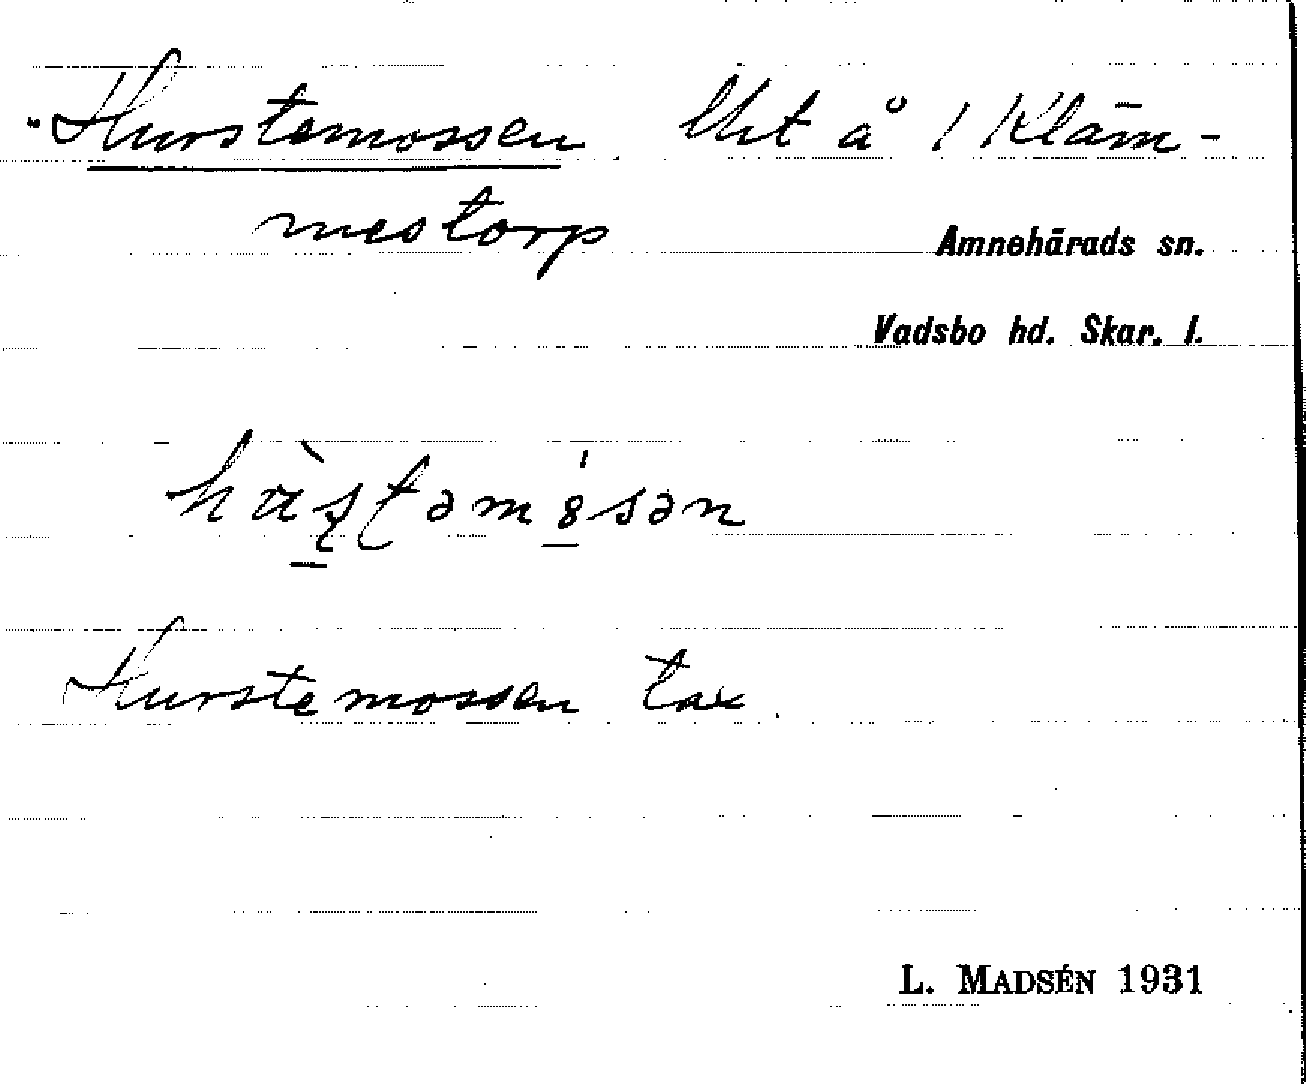 Hurstemossen Uht å 1 Kläm-
mestorp
Amnehärads sn.
Vadsbo hd. Skar. l.
Hurstemossen tax
L. MADSÉN 1931